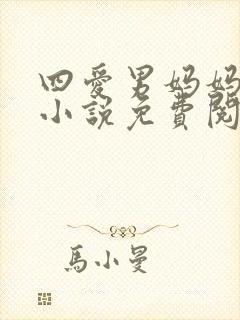 四愛男妈妈
小説免費閱
馬小曼